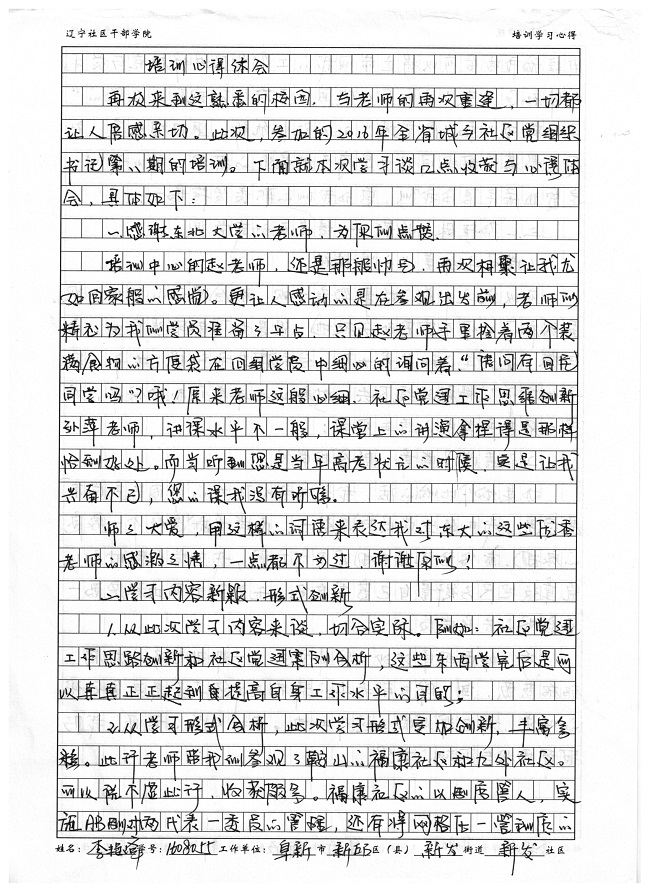 辽宁社区干部学院 培训学习心得
培训心得体会
再次来到这熟悉的校园,与老师的再次重逢,一切都
让人倍感亲切。此次,参加的2013年全省城乡社区党组织
书记第八期的培训。下面就本次学习谈几点收获与心得体
会,具体如下:
一、感谢东北大学的老师,为你们点赞。
培训中心的赵老师,还是那般帅气,再次相聚让我尤
如回家般的感觉。更让人感动的是在参观出发前,老师们
精心为我们学员准备了早点,只见赵老师手里拎着两个装
满食物的方便袋在四组学员中细心的询问着,“请问有回民
同学吗”?哦!原来老师这般心细。社区党建工作思维创新
孙萍老师,讲课水平不一般,课堂上的讲演拿捏得是那样
恰到好处。而当听到您是当年高考状元的时候,更是让我
兴奋不已,您的课我没有听够。
师之大爱,用这样的词语来表达我对东大的这些优秀
老师的感激之情,一点都不为过,谢谢你们!
二、学习内容新颖,形式创新
1.从此次学习内容来谈,切合实际。例如:社区党建
工作思路创新和社区党建案例分析,这些东西学完后是可
以真真正正起到自提高自身工作水平的目的;
2.从学习形式分析,此次学习形式更加创新,丰富多
样。此行老师带我们参观了鞍山的福康社区和九外社区。
可以说不虚此行,收获颇多。福康社区的以制度管人,实
施AB制对两代表一委员的管理,还有将网格区一管到底的
姓名: 学号: 工作单位:阜新市 新邱区(县) 新发街道 新发社区